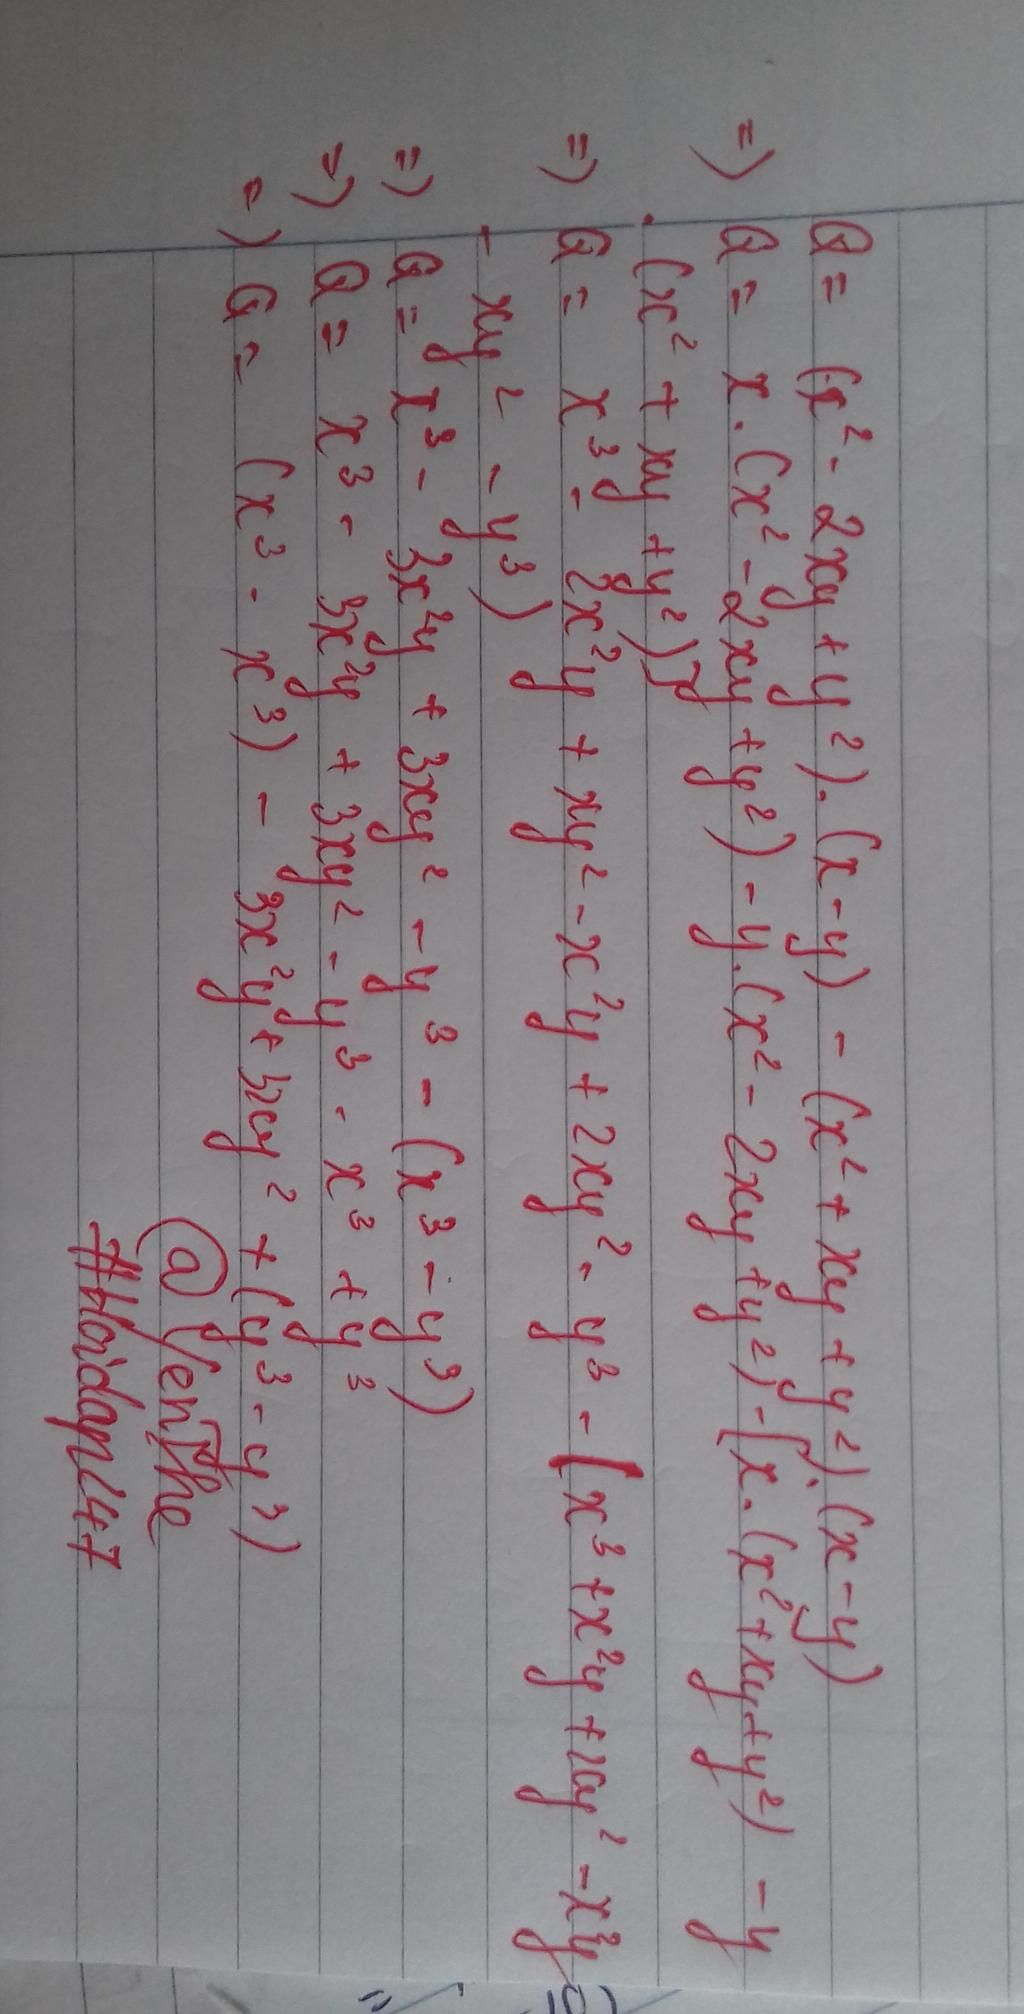 Q = (x² - 2xy + y²).(x-y) - (x² + xy + y²).(x-y)
=) Q = x.(x² - 2xy + y²) - y.(x² - 2xy + y²) - [x.(x² + xy + y²) - y
.(x² + xy + y²)]
=) Q = x³ - 2x²y + xy² - x²y + 2xy² - y³ - (x³ + x²y + xy² - x²y
- xy² - y³)
=) Q = x³ - 3x²y + 3xy² - y³ - (x³ - y³)
=) Q = x³ - 3x²y + 3xy² - y³ - x³ + y³
=) Q = (x³ - x³) - 3x²y + 3xy² + (y³ - y³)
#Hoidap247